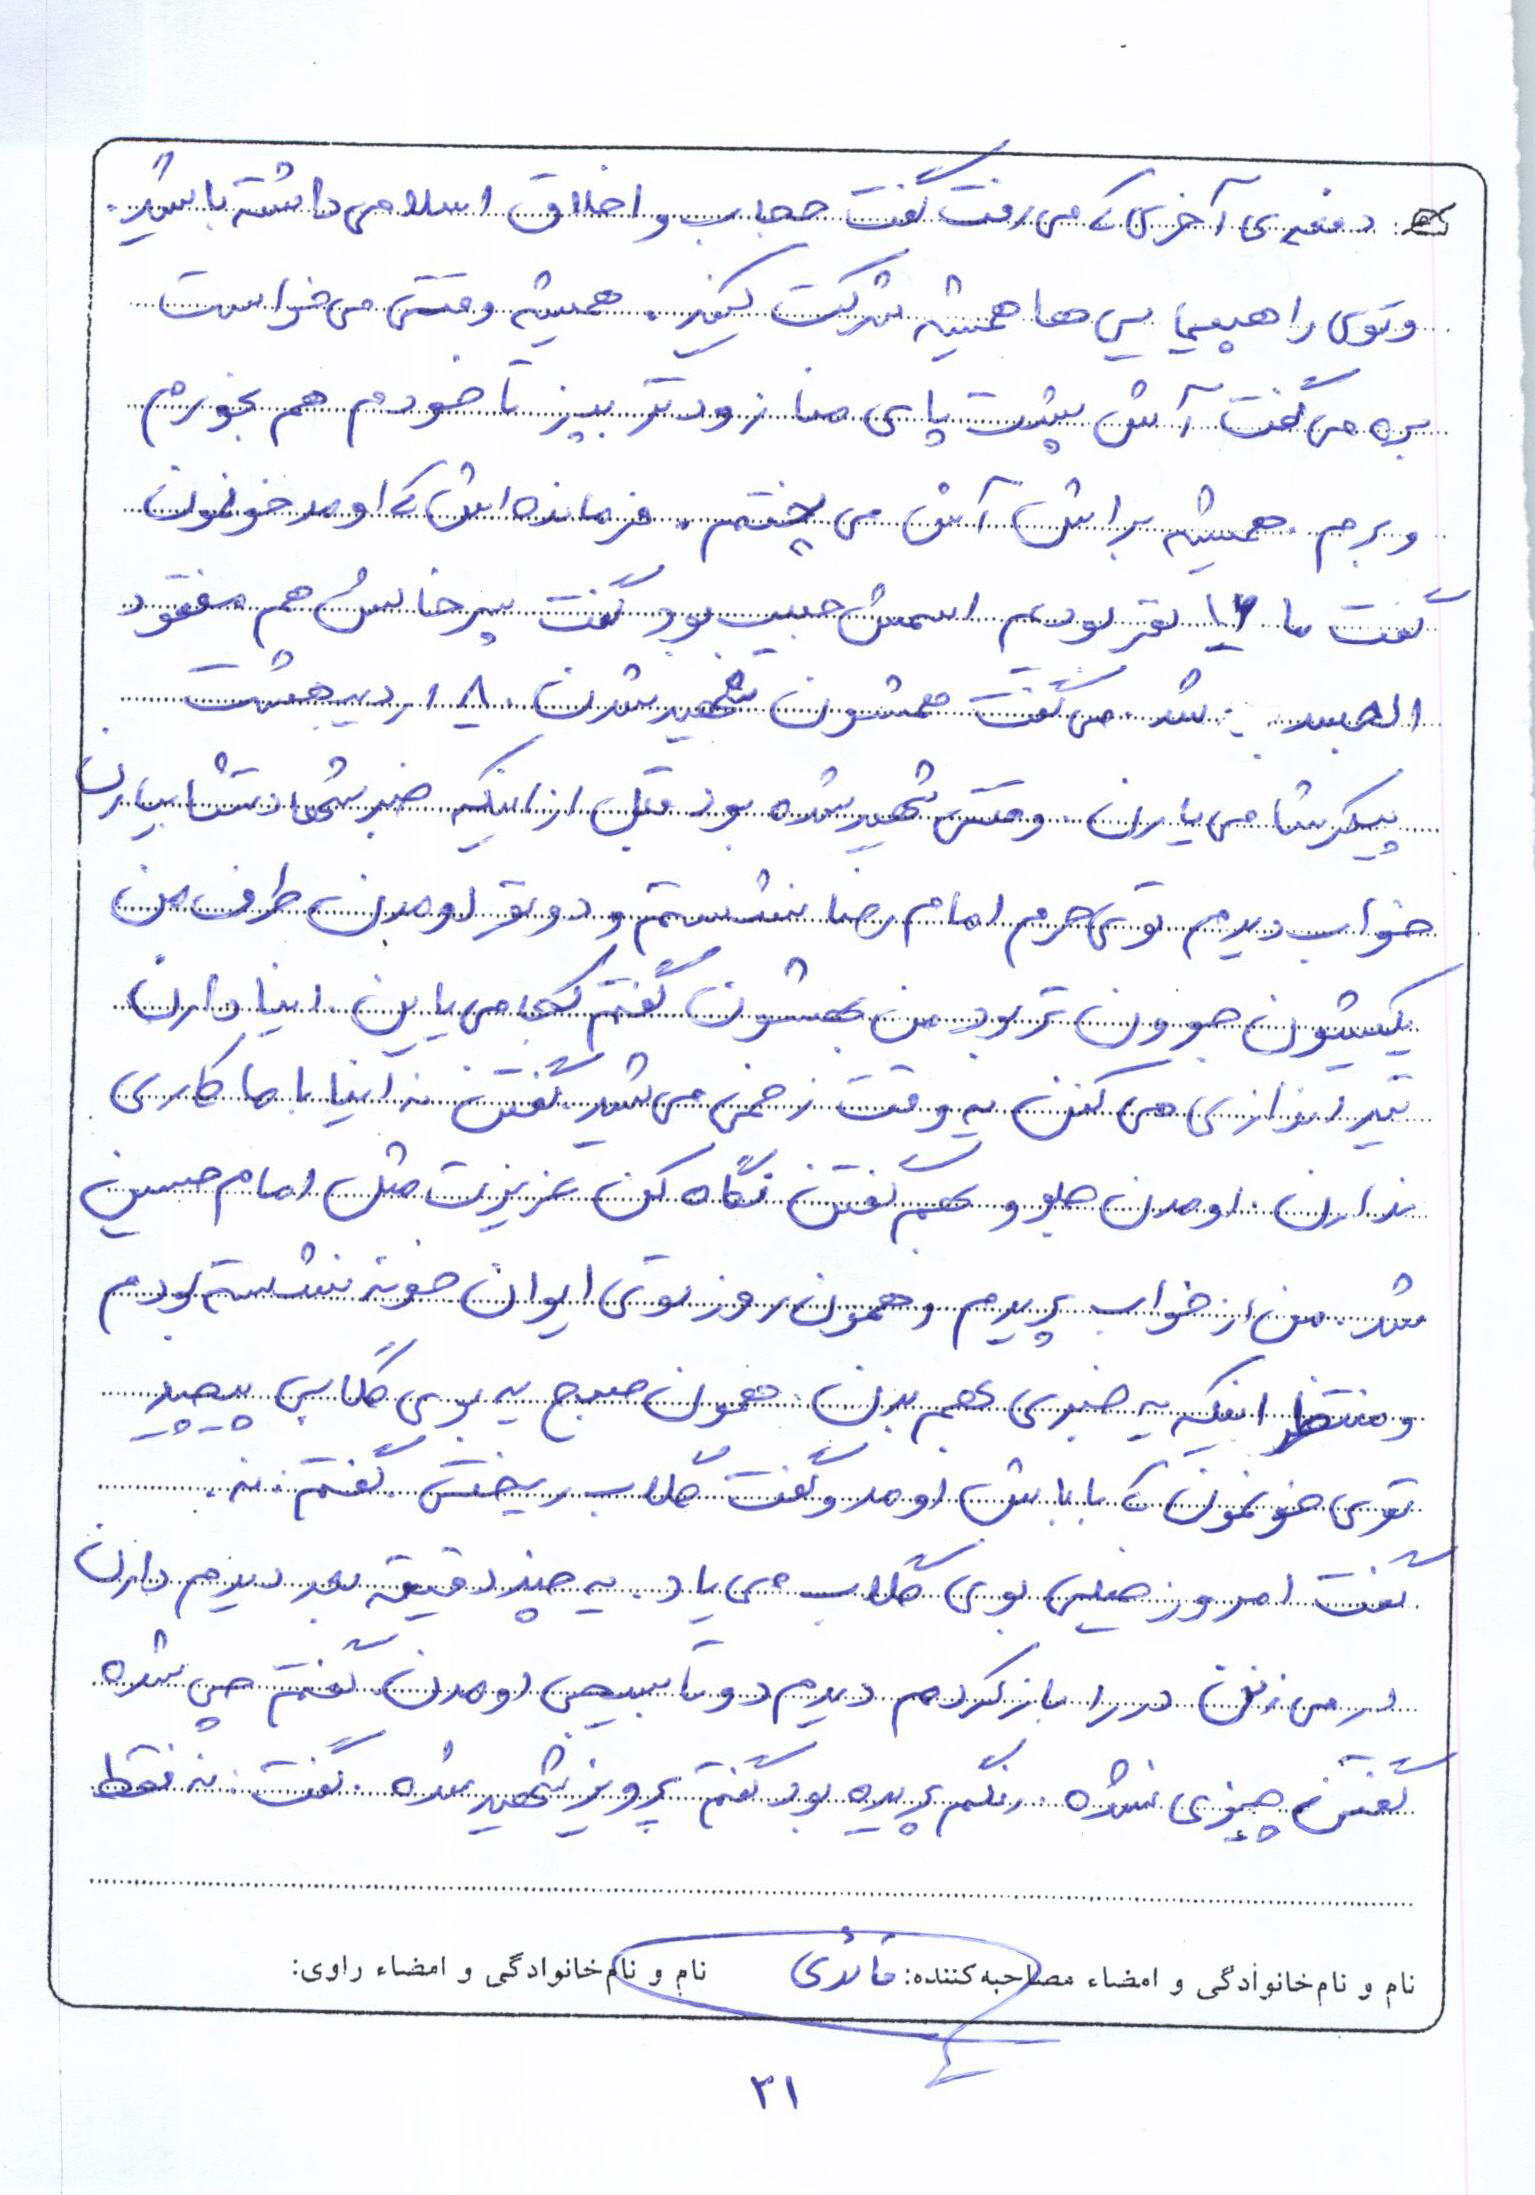 دفعه‌ی آخری که می‌رفت گفت حجاب و اخلاق اسلامی داشته باشید.
و توی راهپیمایی‌ها همیشه شرکت کنید. همیشه وقتی می‌خواست
بره می‌گفت آش پشت پای منا زودتر بپز تا خودم هم بخورم
و برم. همیشه براش آش می‌پختم. فرمانده‌اش که اومد خونمون
گفت ما نفر بودیم اسمش حبیب بود گفت پسر خالش هم مفقود
شد. می‌گفت همشون شهید شدن. ۱۸ اردیبهشت
پیکرشا می‌یارن. وقتی شهید شده بود قبل از اینکه خبر شهادتشا بیارن
خواب دیدم توی حرم امام رضا نشستم و دو نفر اومدن طرف من
یکیشون جوون تر بود من بهشون گفتم کجا می‌یاین. اینا دارن
تیراندازی می‌کنن یه وقت زخمی می‌شید. گفتن نه اینا با ما کاری
ندارن. اومدن جلو و بهم گفتن نگاه کن عزیزت مثل امام حسین
شد. من از خواب پریدم و همون روز توی ایوان خونه نشسته بودم
و منتظر اینکه یه خبری بهم بدن. همون صبح یه بوی گلابی پیچید
توی خونمون که باباش اومد و گفت گلاب ریختی. گفتم: نه.
گفت امروز خیلی بوی گلاب می‌یاد. یه چند دقیقه بعد دیدم دارن
در می‌زنن در را باز کردم دیدم دو تا بسیجی اومدن. گفتم چی شده
گفتن چیزی نشده. رنگم پریده بود گفتم پرویز شهید شده. گفت: نه فقط
نام و نام‌خانوادگی و امضاء مصاحبه‌کننده: قائدی نام و نام‌خانوادگی و امضاء راوی:
۲۱